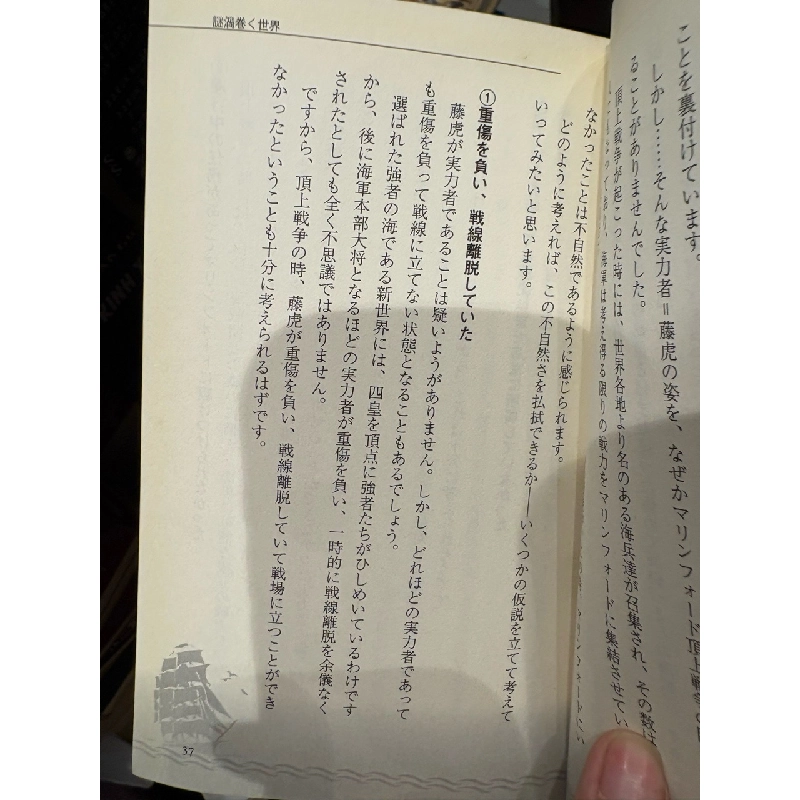 ことを裏付けています。
しかし……そんな実力者＝藤虎の姿を、なぜかマリンフォード頂上戦争の
ることがありませんでした。
頂上戦争が起こった時には、世界各地より名のある海兵達が召集され、その数は
は考え得る限りの戦力をマリンフォードに集結させてい
謎渦巻く世界
なかったことは不自然であるように感じられます。
どのように考えれば、この不自然さを払拭できるか――いくつかの仮説を立てて考えて
いってみたいと思います。
①重傷を負い、戦線離脱していた
藤虎が実力者であることは疑いようがありません。しかし、どれほどの実力者であって
も重傷を負って戦線に立てない状態となることもあるでしょう。
選ばれた強者の海である新世界には、四皇を頂点に強者たちがひしめいているわけです
から、後に海軍本部大将となるほどの実力者が重傷を負い、一時的に戦線離脱を余儀なく
されたとしても全く不思議ではありません。
ですから、頂上戦争の時、藤虎が重傷を負い、戦線離脱していて戦場に立つことができ
なかったということも十分に考えられるはずです。
37